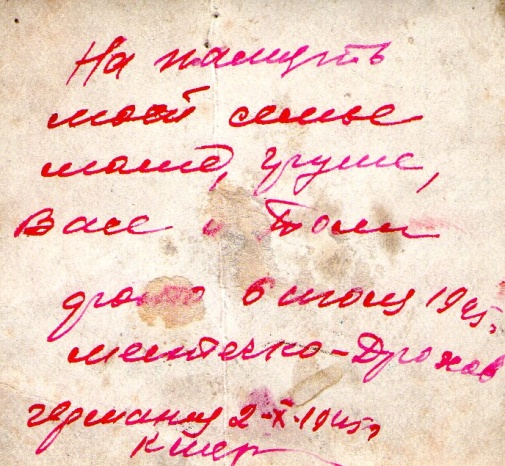 На память
моей семье
маме, Груше,
Васе и Толи
фото 6 июля 1945г
местечко-Дрохов
германия 2-X-1945г